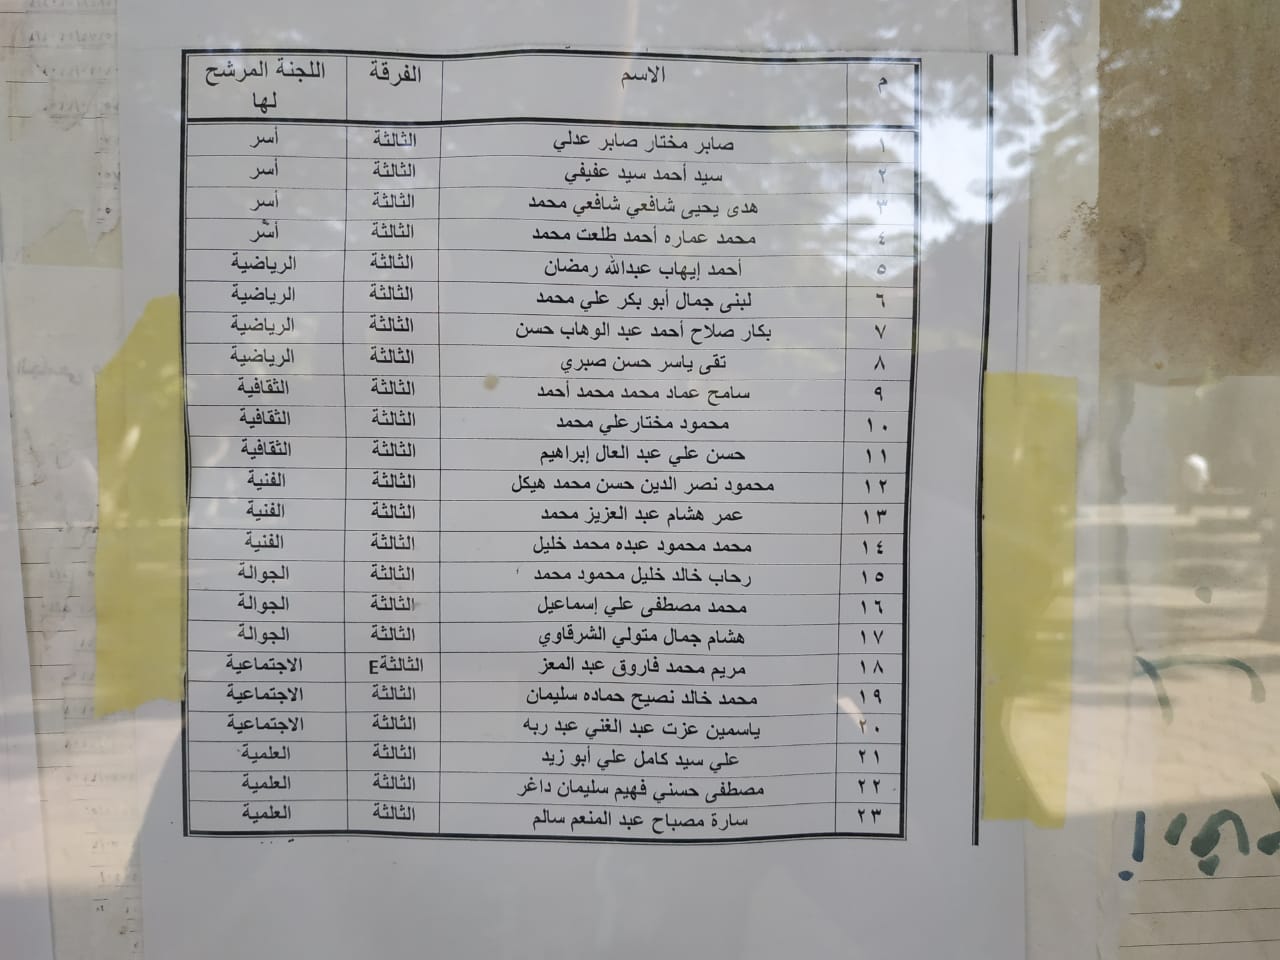 م الاسم الفرقة اللجنة المرشح لها
١ صابر مختار صابر عدلي الثالثة أسر
٢ سيد أحمد سيد عفيفي الثالثة أسر
٣ هدى يحيى شافعي شافعي محمد الثالثة أسر
٤ محمد عماره أحمد طلعت محمد الثالثة أسر
٥ أحمد إيهاب عبدالله رمضان الثالثة الرياضية
٦ لبنى جمال أبو بكر علي محمد الثالثة الرياضية
٧ بكار صلاح أحمد عبد الوهاب حسن الثالثة الرياضية
٨ تقى ياسر حسن صبري الثالثة الرياضية
٩ سامح عماد محمد محمد أحمد الثالثة الثقافية
١٠ محمود مختارعلي محمد الثالثة الثقافية
١١ حسن علي عبد العال إبراهيم الثالثة الثقافية
١٢ محمود نصر الدين حسن محمد هيكل الثالثة الفنية
١٣ عمر هشام عبد العزيز محمد الثالثة الفنية
١٤ محمد محمود عبده محمد خليل الثالثة الفنية
١٥ رحاب خالد خليل محمود محمد الثالثة الجوالة
١٦ محمد مصطفى علي إسماعيل الثالثة الجوالة
١٧ هشام جمال متولي الشرقاوي الثالثة الجوالة
١٨ مريم محمد فاروق عبد المعز الثالثةE الاجتماعية
١٩ محمد خالد نصيح حماده سليمان الثالثة الاجتماعية
٢٠ ياسمين عزت عبد الغني عبد ربه الثالثة الاجتماعية
٢١ علي سيد كامل علي أبو زيد الثالثة العلمية
٢٢ مصطفى حسني فهيم سليمان داغر الثالثة العلمية
٢٣ سارة مصباح عبد المنعم سالم الثالثة العلمية